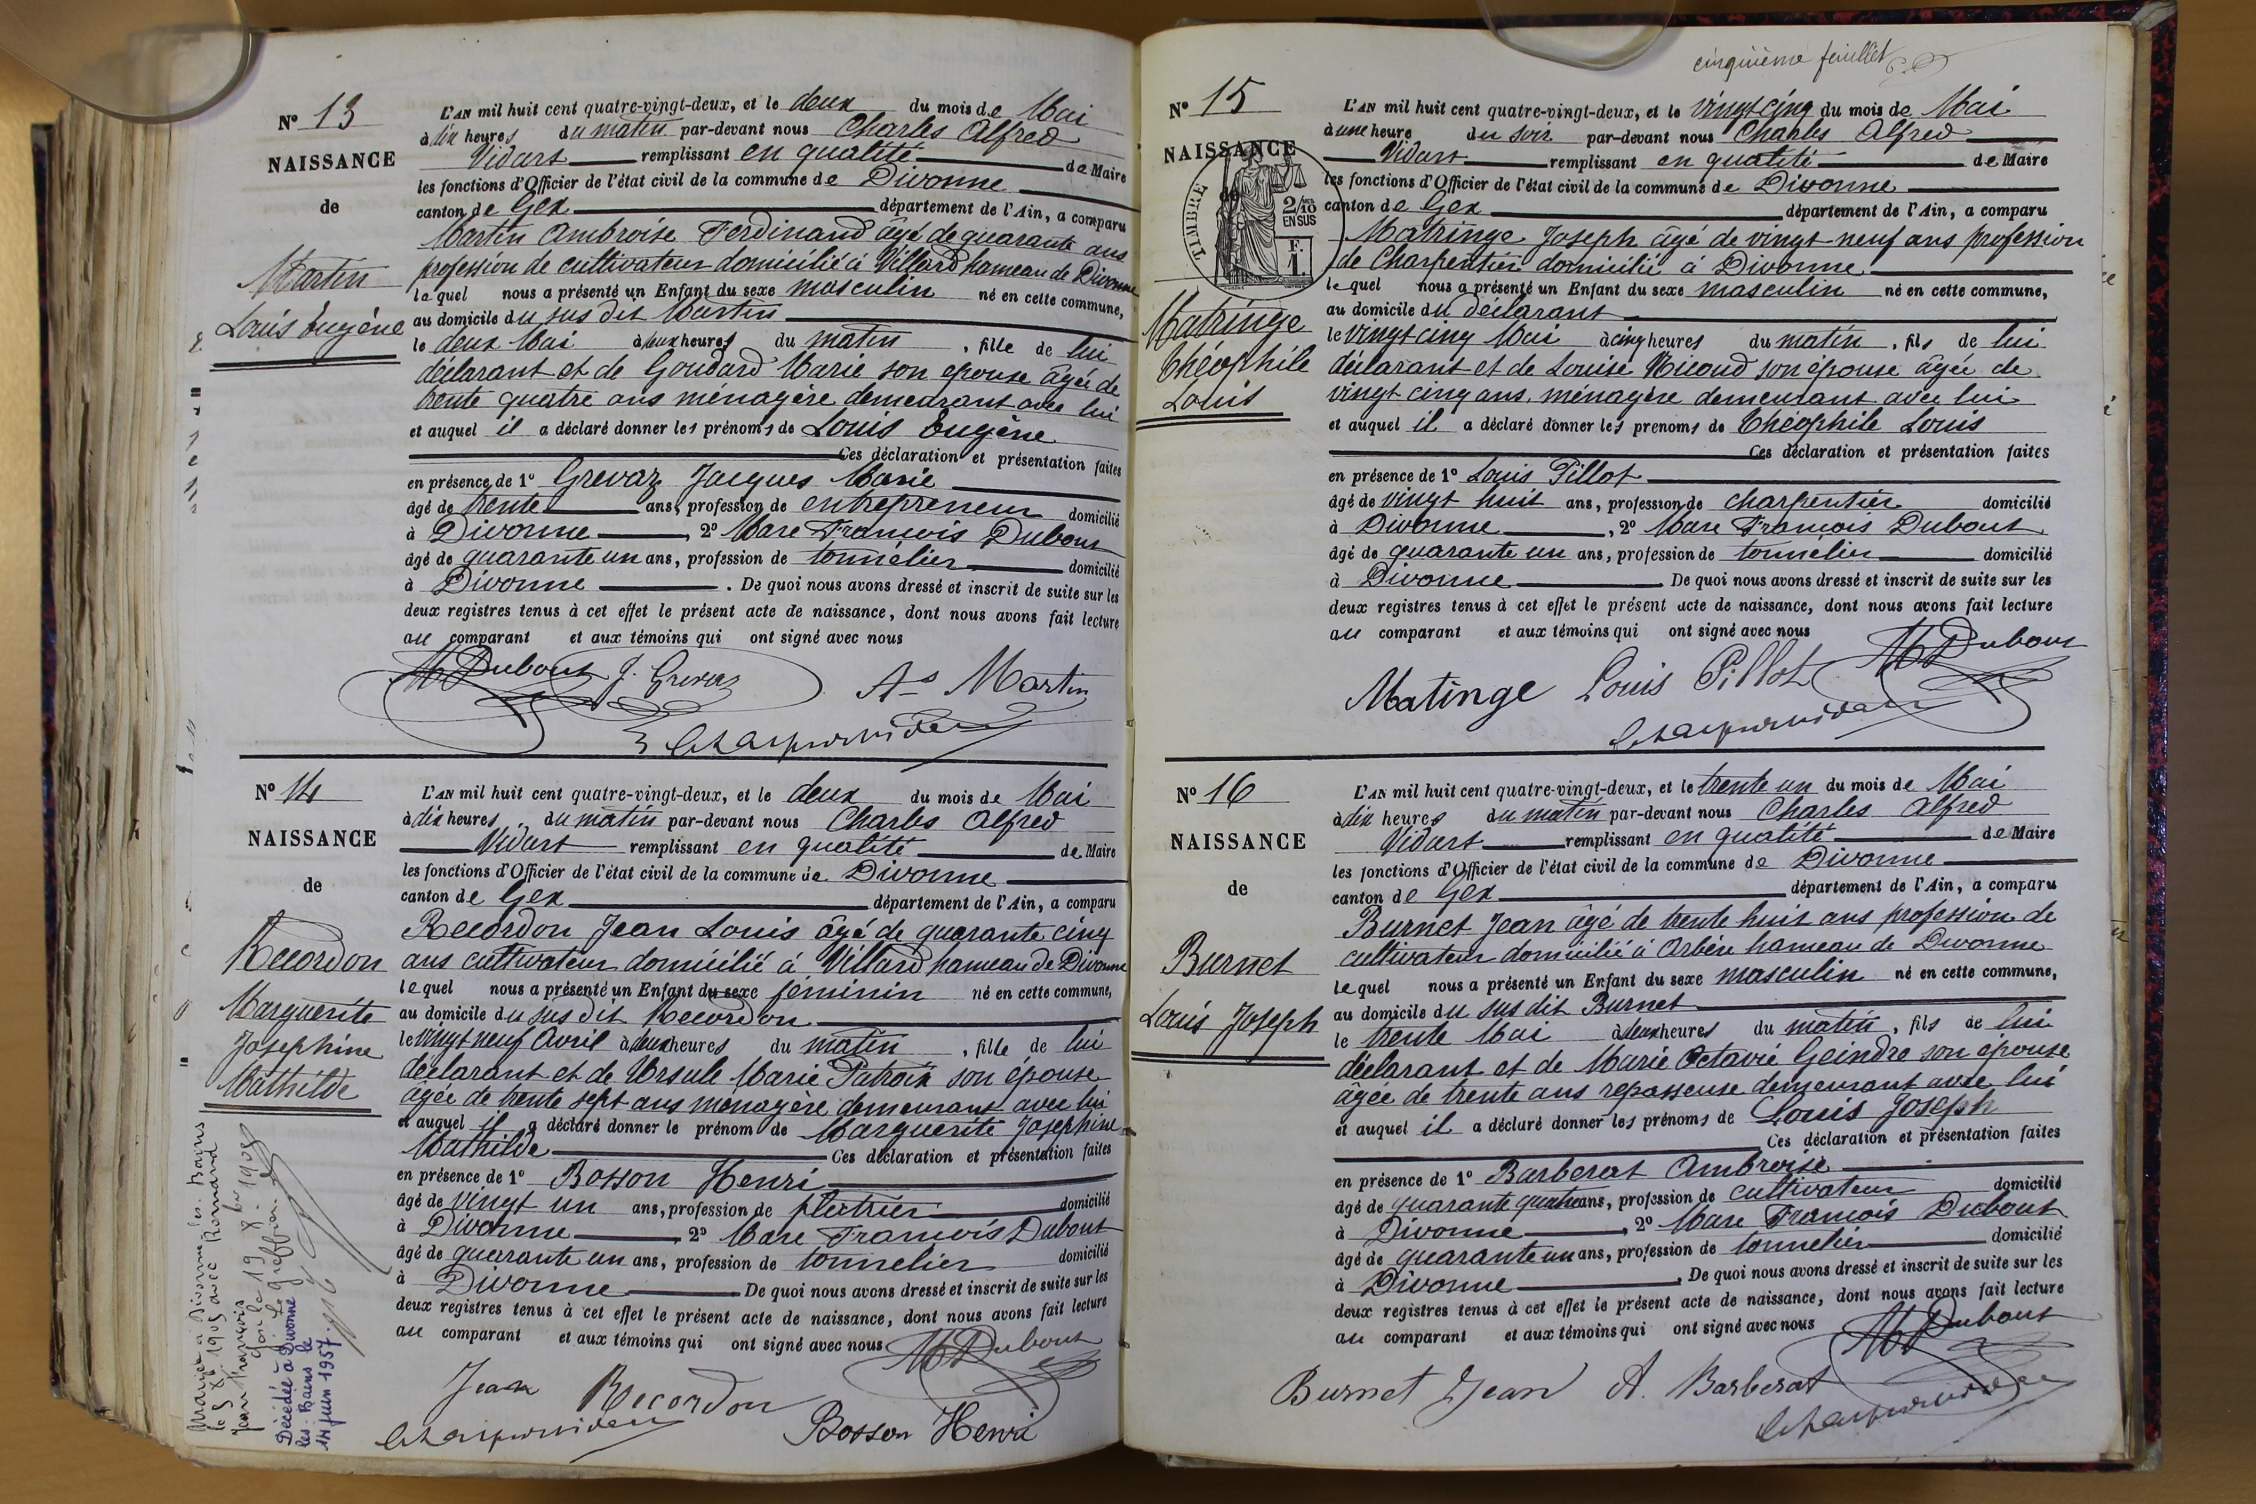 N° 13
NAISSANCE
de
Martin
Louis Eugène
L'AN mil huit cent quatre-vingt-deux, et le deux du mois de Mai
à dix heures du matin par-devant nous Charles Alfred
Vidart remplissant en qualité de Maire
les fonctions d'Officier de l'état civil de la commune de Divonne
canton de Gex département de l'Ain, a comparu
Martin Ambroise Ferdinand âgé de quarante ans
profession de cultivateur domicilié à Villard hameau de Divonne
lequel nous a présenté un Enfant du sexe masculin né en cette commune,
au domicile du sus dit Martin
le deux Mai à deux heures du matin, fille de lui
déclarant et de Goudard Marie son épouse âgée de
trente quatre ans ménagère demeurant avec lui
et auquel il a déclaré donner les prénoms de Louis Eugène
Ces déclaration et présentation faites
en présence de 1° Grevaz Jacques Marie
âgé de trente ans, profession de entrepreneur domicilié
à Divonne, 2° Marc François Dubout
âgé de quarante un ans, profession de tonnelier domicilié
à Divonne. De quoi nous avons dressé et inscrit de suite sur les
deux registres tenus à cet effet le présent acte de naissance, dont nous avons fait lecture
au comparant et aux témoins qui ont signé avec nous
Dubout J. Grevaz As Martin
N° 14
NAISSANCE
de
Recordon
Marguerite
Josephine
Mathilde
Mariée à Divonne-les-Bains
le 5 8bre 1905 avec Romand
Jean François
Gex le 19 8bre 1905
Le Greffier
Décédée à Divonne
les-Bains le
14 juin 1957
L'AN mil huit cent quatre-vingt-deux, et le deux du mois de Mai
à dix heures du matin par-devant nous Charles Alfred
Vidart remplissant en qualité de Maire
les fonctions d'Officier de l'état civil de la commune de Divonne
canton de Gex département de l'Ain, a comparu
Recordon Jean Louis âgé de quarante cinq
ans cultivateur domicilié à Villard hameau de Divonne
lequel nous a présenté un Enfant du sexe féminin né en cette commune,
au domicile du sus dit Recordon
le vingt neuf Avril à deux heures du matin, fille de lui
déclarant et de Ursule Marie Patroix son épouse
âgée de trente sept ans ménagère demeurant avec lui
et auquel il a déclaré donner le prénom de Marguerite Josephine
Mathilde Ces déclaration et présentation faites
en présence de 1° Bosson Henri
âgé de vingt un ans, profession de platrier domicilié
à Divonne 2° Marc François Dubout
âgé de quarante un ans, profession de tonnelier domicilié
à Divonne De quoi nous avons dressé et inscrit de suite sur les
deux registres tenus à cet effet le présent acte de naissance, dont nous avons fait lecture
au comparant et aux témoins qui ont signé avec nous Dubout
Jean Recordon
Bosson Henri
cinquième feuillet
N° 15
NAISSANCE
de
TIMBRE
2/10
EN SUS
F.
1.
Matringe
Théophile
Louis
L'AN mil huit cent quatre-vingt-deux, et le vingt cinq du mois de Mai
à une heure du soir par-devant nous Charles Alfred
Vidart remplissant en qualité de Maire
les fonctions d'Officier de l'état civil de la commune de Divonne
canton de Gex département de l'Ain, a comparu
Matringe Joseph âgé de vingt-neuf ans profession
de Charpentier domicilié à Divonne
lequel nous a présenté un Enfant du sexe masculin né en cette commune,
au domicile du déclarant
le vingt cinq Mai à cinq heures du matin, fils de lui
déclarant et de Louise Nicoud son épouse âgée de
vingt cinq ans, ménagère demeurant avec lui
et auquel il a déclaré donner les prenoms de Théophile Louis
Ces déclaration et présentation faites
en présence de 1° Louis Pillot
âgé de vingt huit ans, profession de charpentier domicilié
à Divonne, 2° Marc François Dubout
âgé de quarante un ans, profession de tonnelier domicilié
à Divonne. De quoi nous avons dressé et inscrit de suite sur les
deux registres tenus à cet effet le présent acte de naissance, dont nous avons fait lecture
au comparant et aux témoins qui ont signé avec nous
Matinge Louis Pillot Dubout
N° 16
NAISSANCE
de
Burnet
Louis Joseph
L'AN mil huit cent quatre-vingt-deux, et le trente un du mois de Mai
à dix heures du matin par-devant nous Charles Alfred
Vidart remplissant en qualité de Maire
les fonctions d'Officier de l'état civil de la commune de Divonne
canton de Gex département de l'Ain, a comparu
Burnet Jean âgé de trente huit ans profession de
cultivateur domicilié à Arbère hameau de Divonne
lequel nous a présenté un Enfant du sexe masculin né en cette commune,
au domicile du sus dit Burnet
le trente Mai à deux heures du matin, fils de lui
déclarant et de Marie Octavie Geindre son épouse
âgée de trente ans repasseuse demeurant avec lui
et auquel il a déclaré donner les prénoms de Louis Joseph
Ces déclaration et présentation faites
en présence de 1° Barberat Ambroise
âgé de quarante quatre ans, profession de cultivateur domicilié
à Divonne, 2° Marc François Dubout
âgé de quarante un ans, profession de tonnelier domicilié
à Divonne. De quoi nous avons dressé et inscrit de suite sur les
deux registres tenus à cet effet le présent acte de naissance, dont nous avons fait lecture
au comparant et aux témoins qui ont signé avec nous
Dubout
Burnet Jean A. Barberat